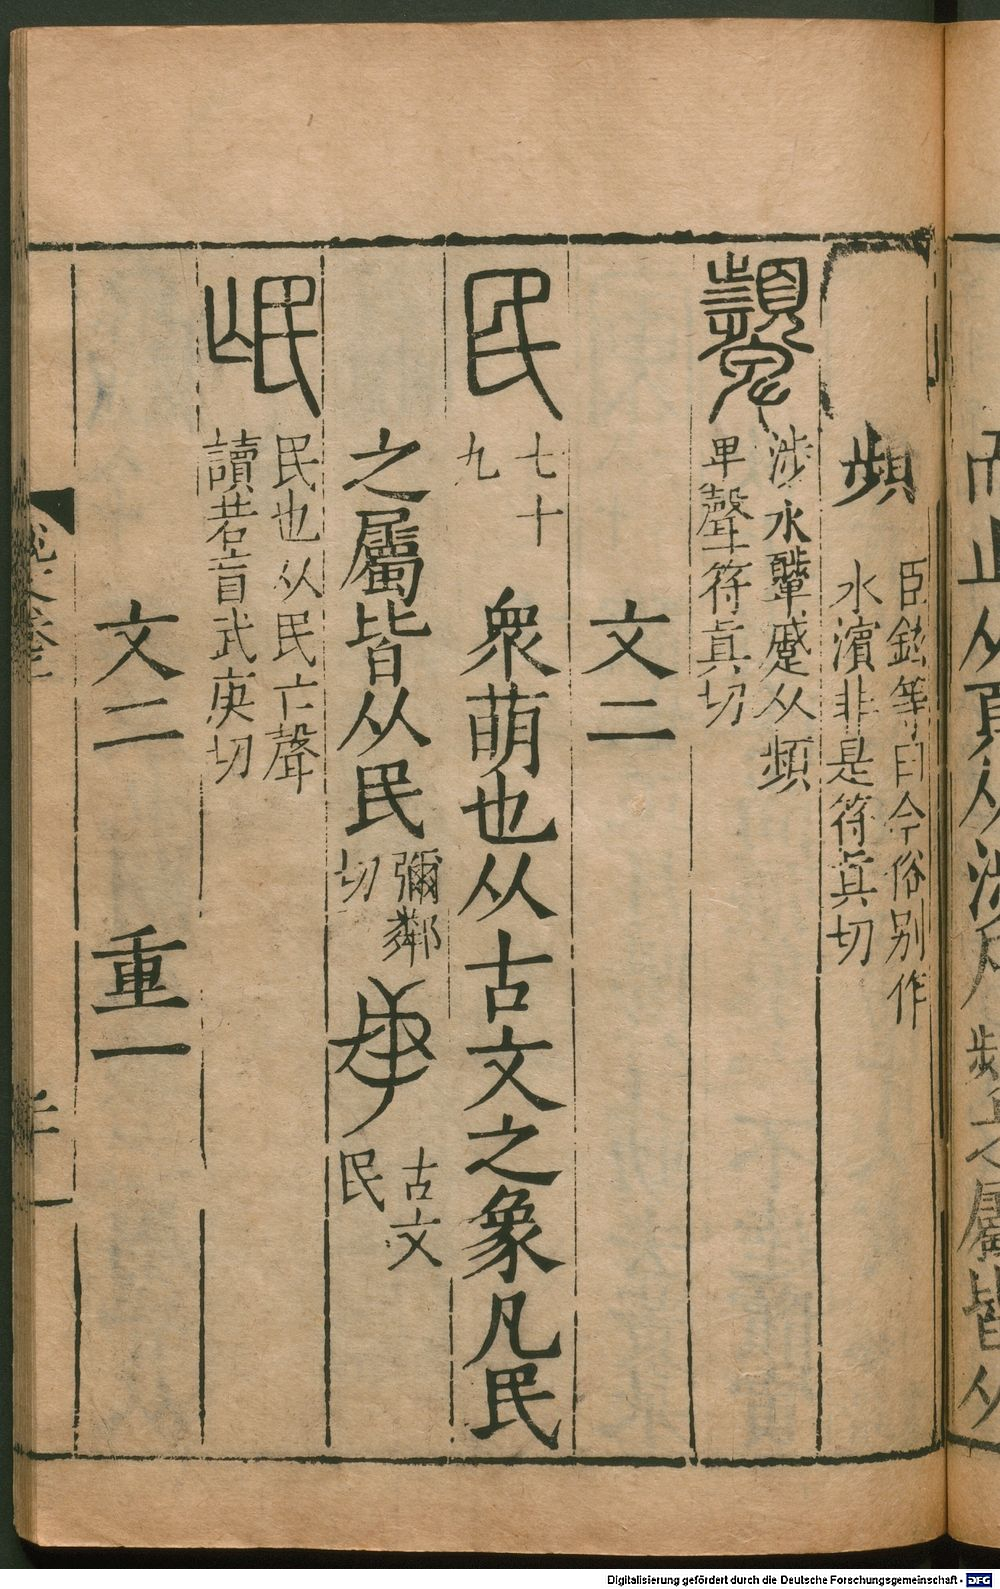 頻 臣鉉等曰今俗別作
水濵非是符眞切
顰 涉水顰蹙从頻
卑聲符眞切
文二
民 七十九 衆萌也从古文之象凡民
之屬皆从民 彌鄰切 古文民
氓 民也从民亡聲
讀若盲武庚切
文二 重一
Digitalisierung gefördert durch die Deutsche Forschungsgemeinschaft - DFG